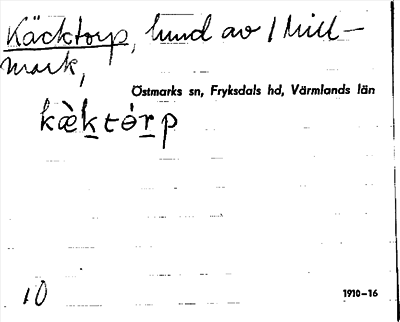 Käcktorp, lund av / Mill-
mark,
Östmarks sn, Fryksdals hd, Värmlands län
kæ̀którp
10
1910-16